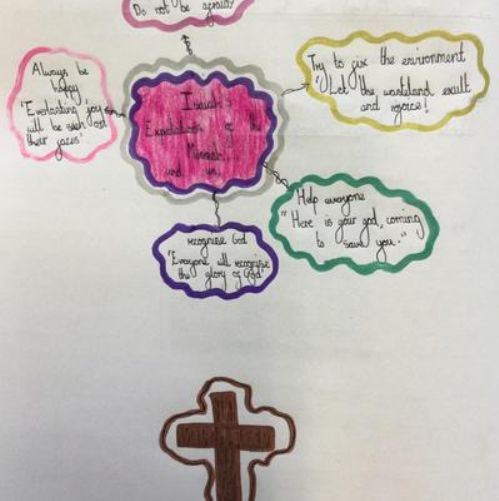 Do not be afraid
Always be
happy
'Everlasting joy
will be seen on
their faces'
Isaiah's
Expectations of the
Messiah
and us
Try to fix the environment
"Let the wasteland exult
and rejoice!
Help everyone
"Here is your god, coming
to save you."
recognise God
'Everyone will recognise
the glory of God'